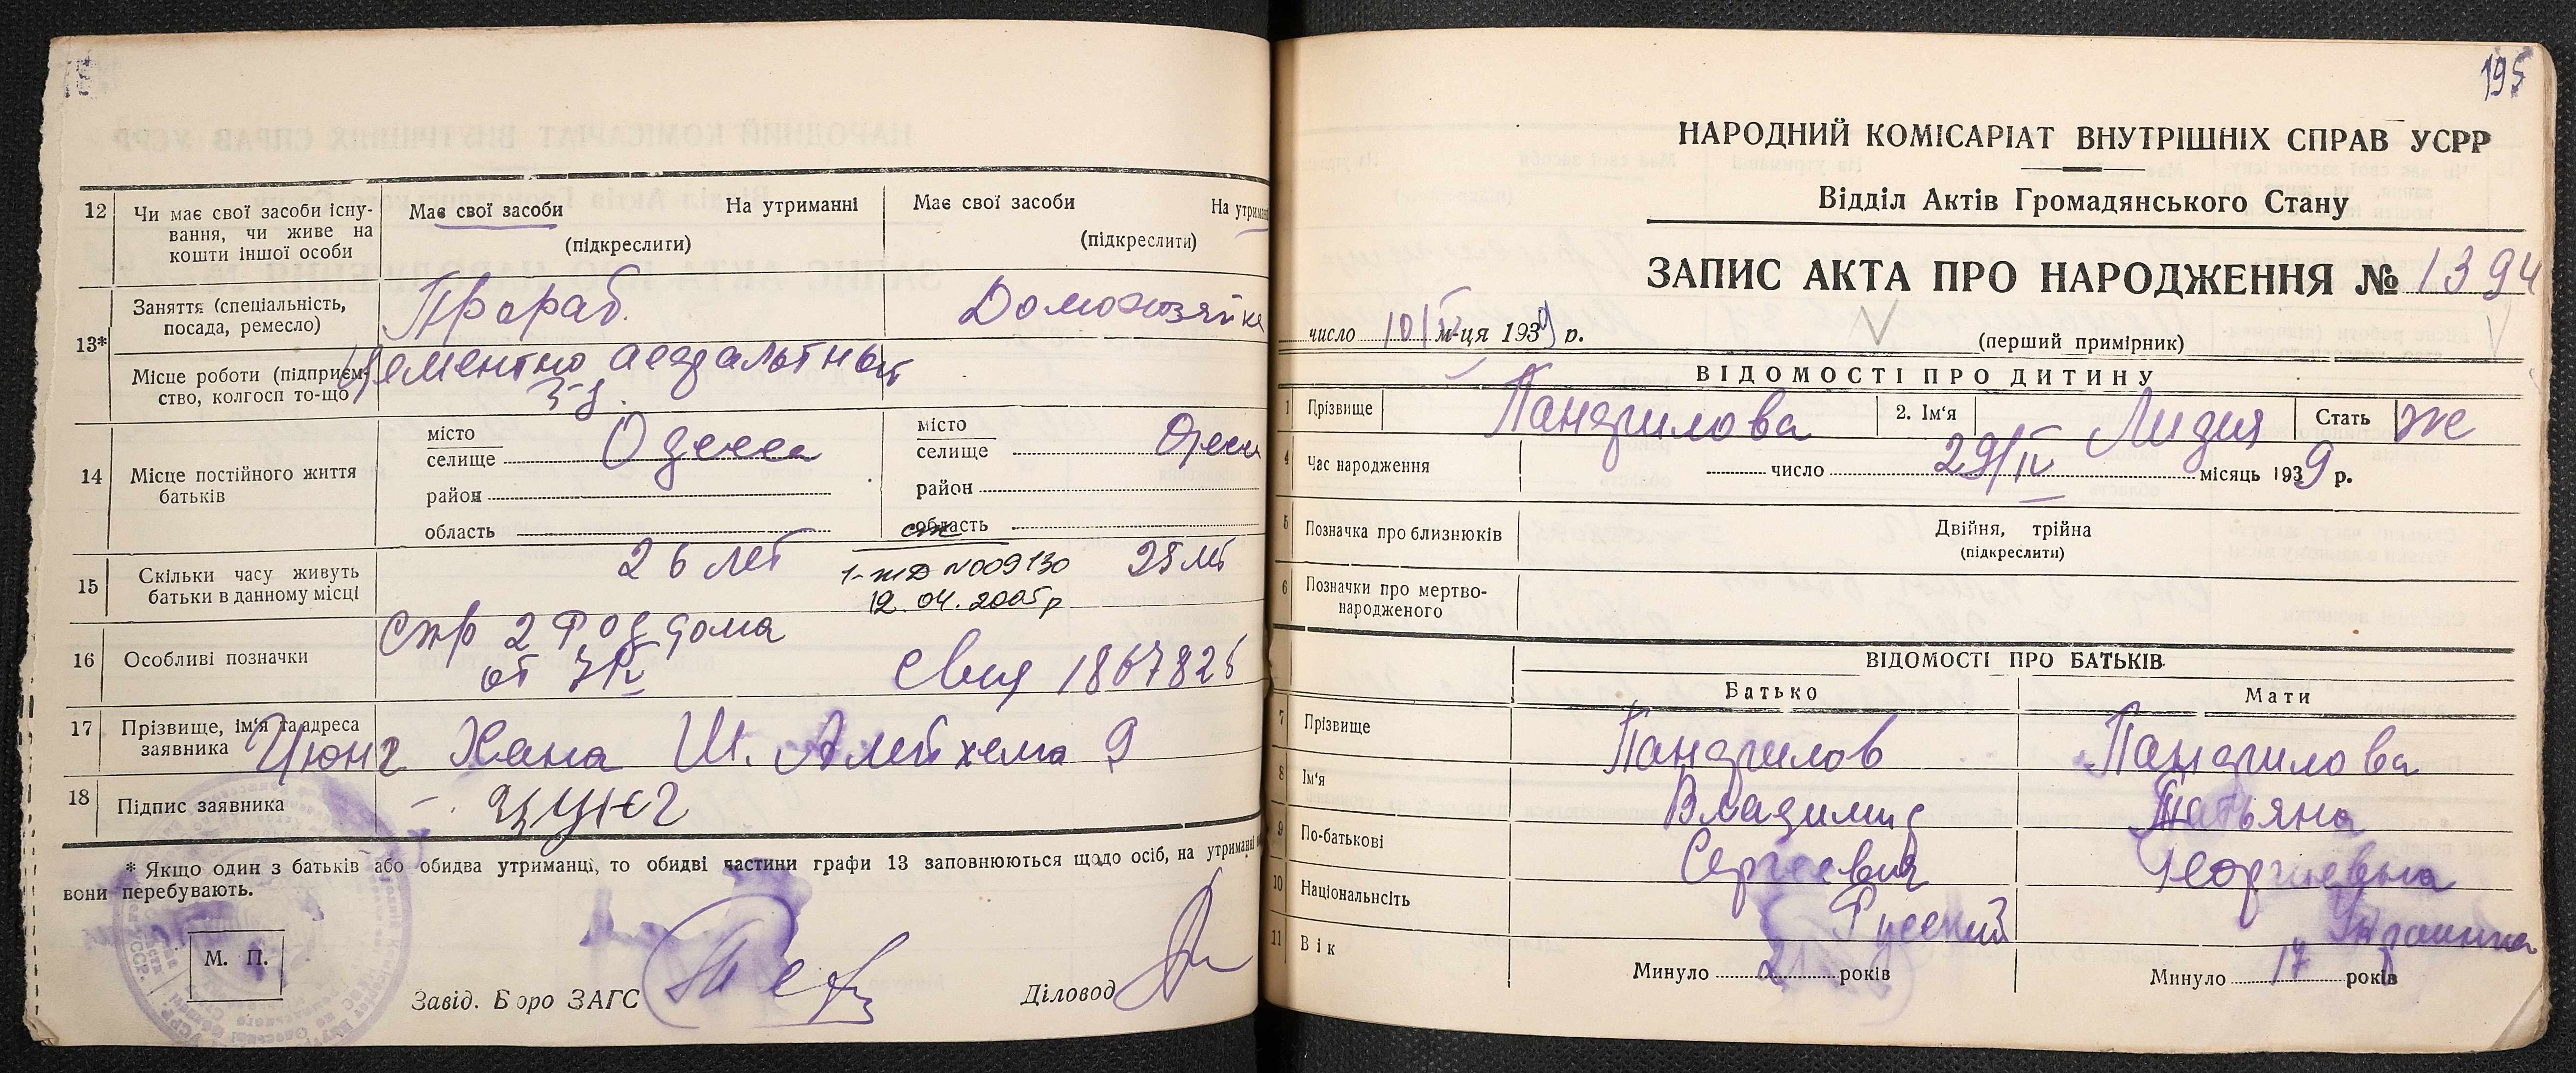 12
Чи має свої засоби існу-
вання, чи живе на
кошти іншої особи
Має свої засоби На утриманні
(підкреслити)
Має свої засоби На утриман
(підкреслити)
13*
Заняття (спеціальність,
посада, ремесло)
Прораб.
Домохозяйка
Місце роботи (підприєм-
ство, колгосп то-що)
Цементно асфальтный
з-д.
14
Місце постійного життя
батьків
місто
селище Одесса
район
область
місто
селище Одесса
район
область
15
Скільки часу живуть
батьки в данному місці
26 лет
І-ЖД №009130
12.04.2005р
25 лет
16
Особливі позначки
спр 2 Роддома
от 7/IV
Свид 1867826
17
Прізвище, ім'я та адреса
заявника
Цюнг Хана Ш. Алейхема 9
18
Підпис заявника
* Якщо один з батьків або обидва утриманці, то обидві частини графи 13 заповнюються щодо осіб, на утриманні
вони перебувають.
М. П.
Завід. Бюро ЗАГС
Діловод
195
НАРОДНИЙ КОМІСАРІАТ ВНУТРІШНІХ СПРАВ УСРР
Відділ Актів Громадянського Стану
ЗАПИС АКТА ПРО НАРОДЖЕННЯ № 1394
число 10/IV м-ця 1939 р.
(перший примірник)
ВІДОМОСТІ ПРО ДИТИНУ
1 Прізвище Панфилова 2. Ім'я Лидия Стать Ж
4 Час народження число 29/IV місяць 1939 р.
5 Позначка про близнюків
Двійня, трійна
(підкреслити)
6 Позначки про мертво-
народженого
ВІДОМОСТІ ПРО БАТЬКІВ
Батько Мати
7 Прізвище Панфилов Панфилова
8 Ім'я Владимир Татьяна
9 По-батькові Сергеевич Георгиевна
10 Національнсіть Русский Украинка
11 Вік Минуло 21 років Минуло 17 років